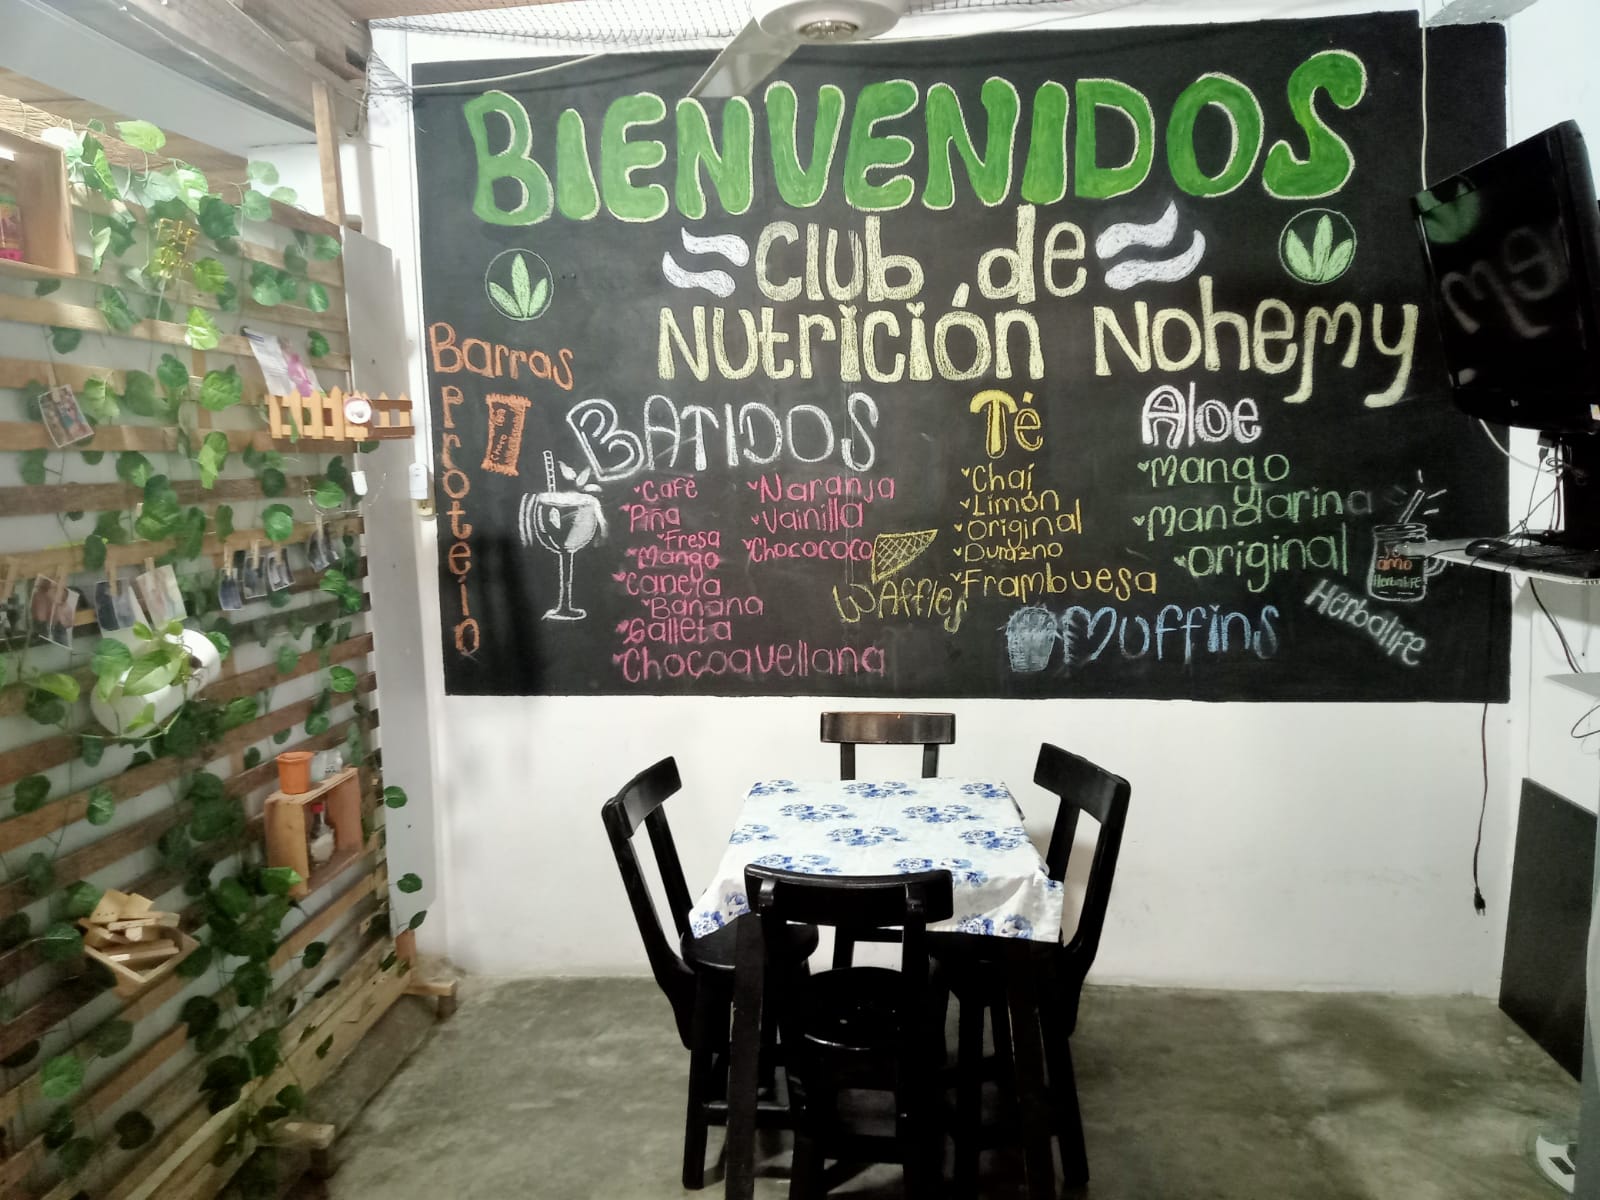 BIENVENIDOS
Club de
Nutrición Nohemy
Barras
Proteín
BATIDOS
Café
Piña
Fresa
Mango
Canela
Banana
Galleta
Chocoavellana
Naranja
Vainilla
Chocococo
Waffles
Té
Chai
Limón
Original
Durazno
Frambuesa
Muffins
Aloe
Mango
Mandarina
original
amo
Herbalife
Herbalife